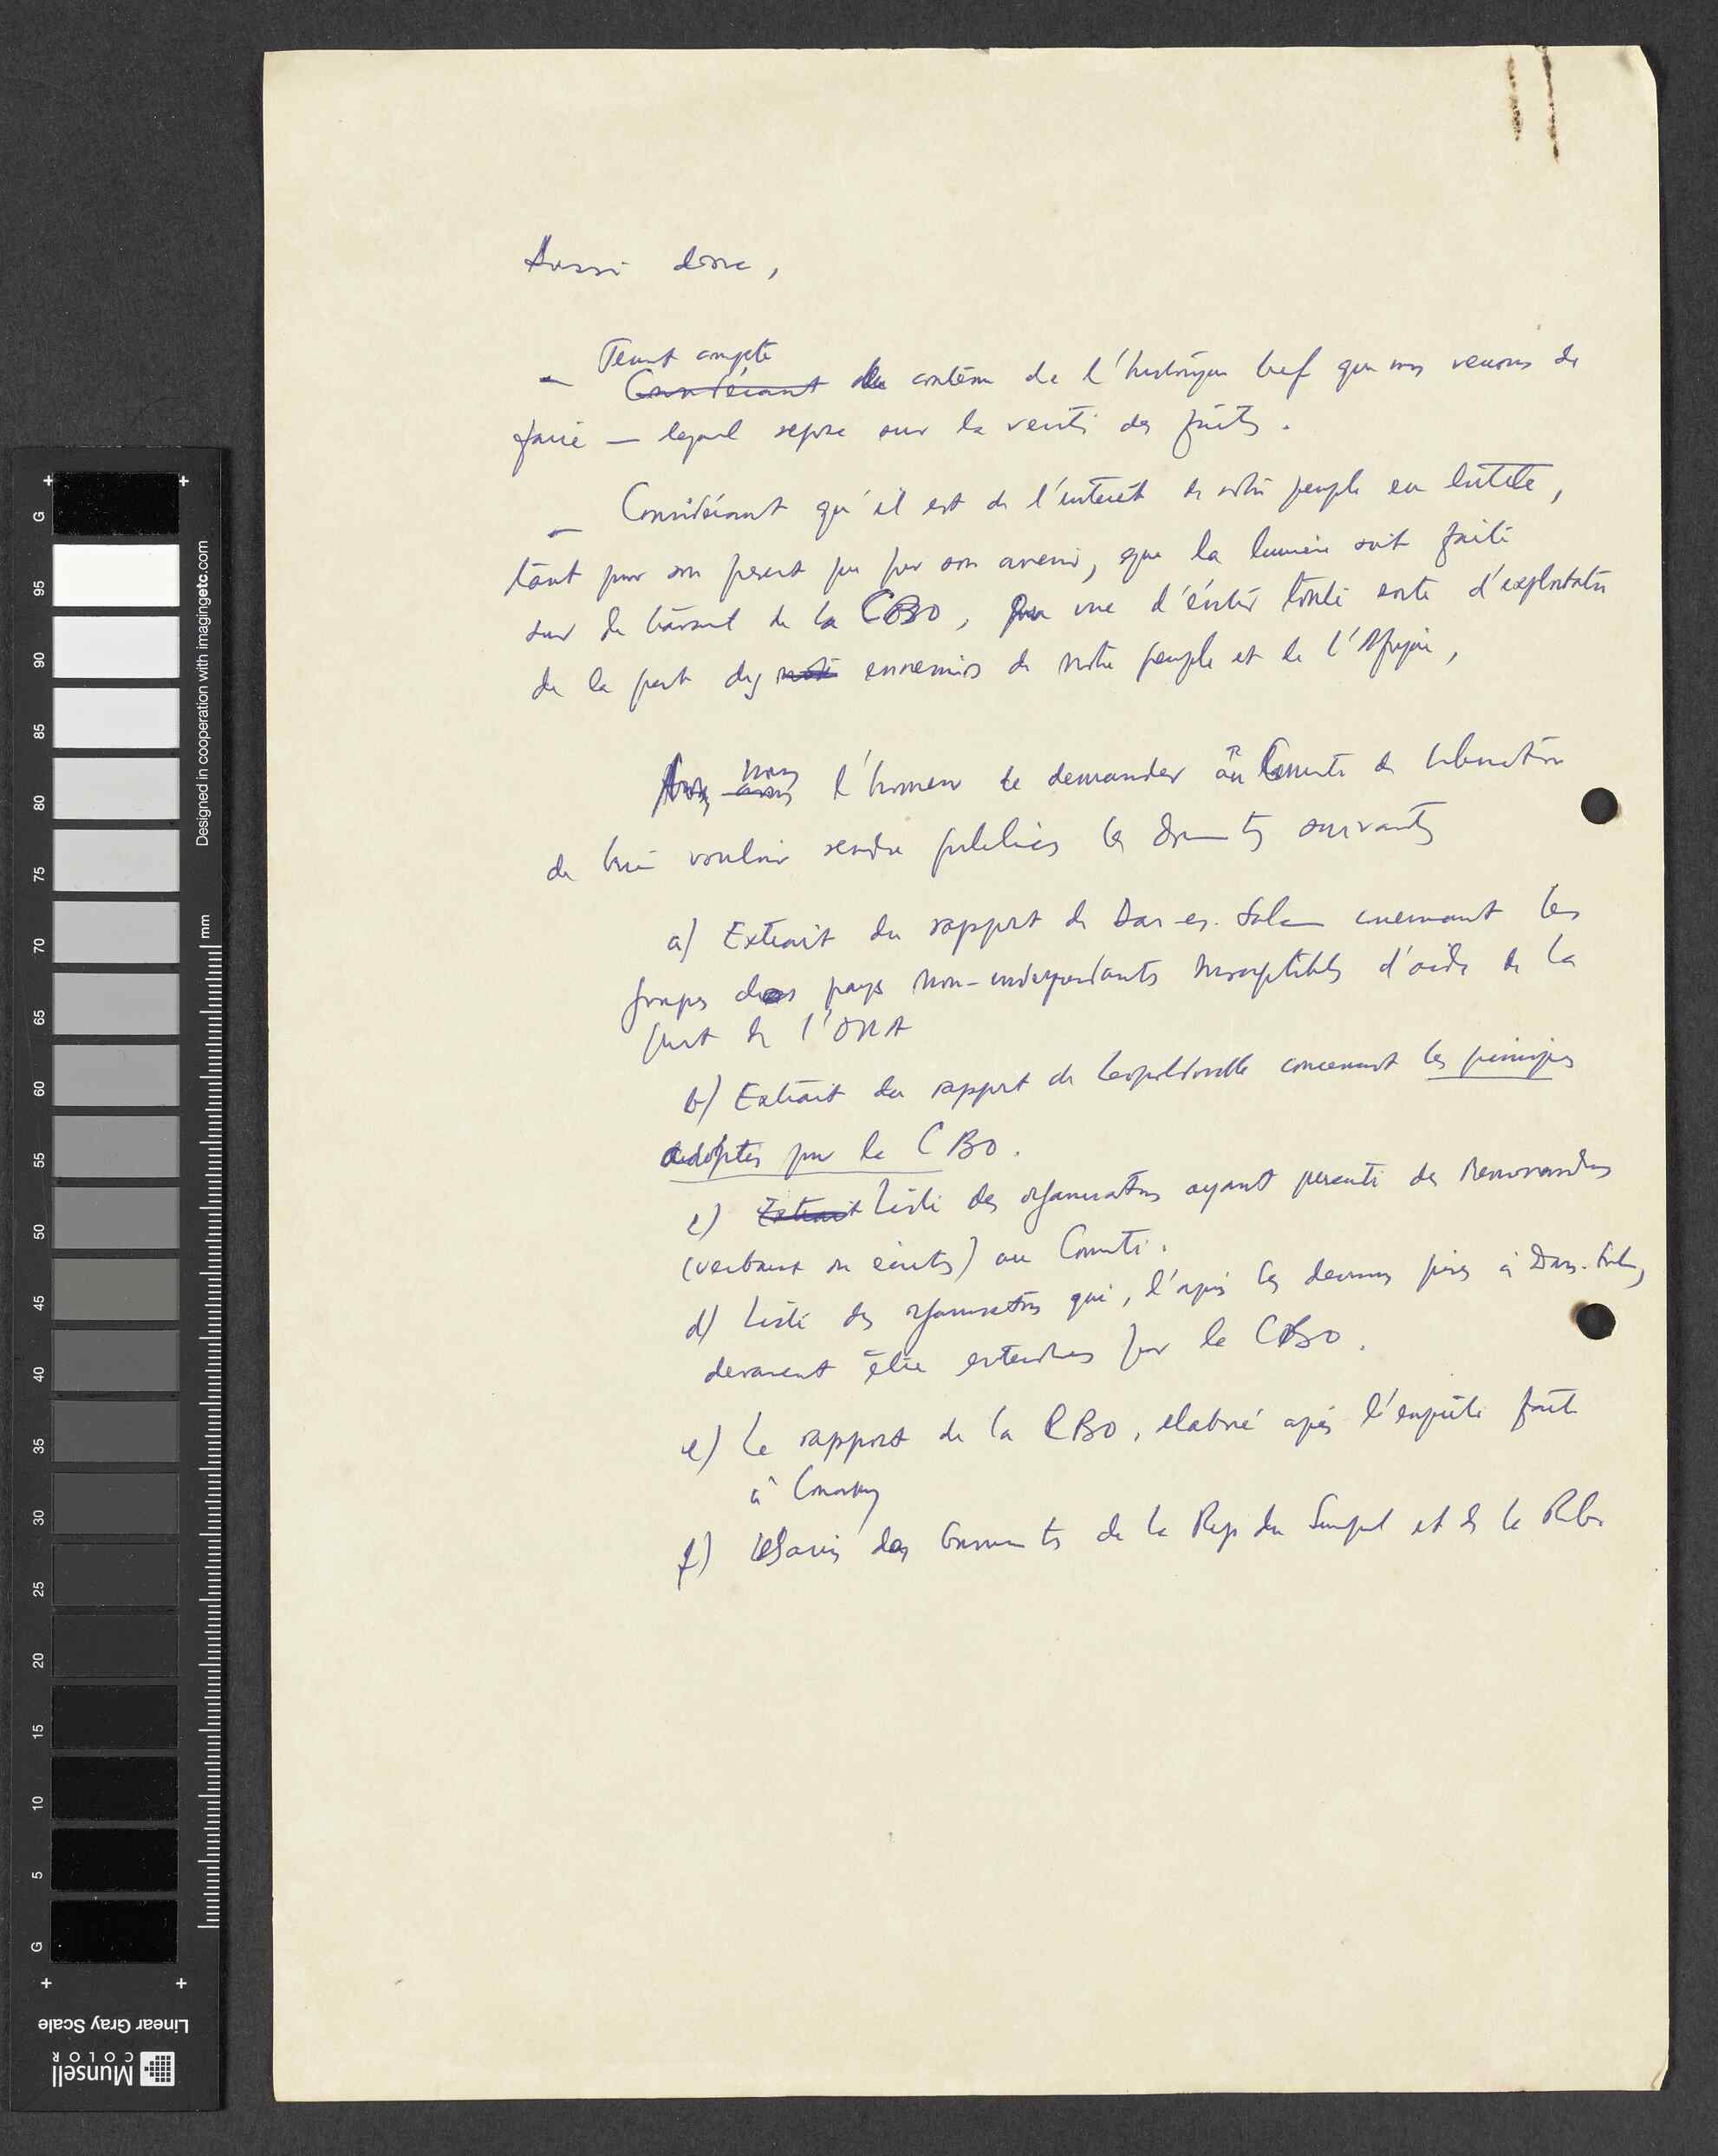 Aussi donc,
Tenant compte
— Considérant du contenu de l'historique bref que nous venons de
faire — lequel repose sur la verité des faits.
— Considérant qu'il est de l'intérêt de notre peuple en lutte,
tant pour son present que pour son avenir, que la lumière soit faite
sur le travail de la CBO, en vue d'éviter toute sorte d'exploitation
de la part des ennemis de notre peuple et de l'Afrique,
nous
avons l'honneur de demander au Comité de Liberation
de bien vouloir rendre publics les documents suivants
a) Extrait du rapport de Dar-es-Salam concernant les
groupes des pays non-independants susceptibles d'aide de la
part de l'OUA
b) Extrait du rapport de Leopoldville concernant les principes
adoptés par le CBO.
c) Extrait Liste des organisations ayant presenté des Memorandums
(verbaux ou écrits) au Comité.
d) Liste des organisations qui, d'après les decisions prises à Dar-es-Salam,
devraient être entendues par le CBO.
e) Le rapport de la CBO, elaboré après l'enquête faite
à Conakry
f) des documents de la Rep du Senegal et de la
G
95
90
85
80
75
70
65
60
55
50
45
40
35
30
25
20
15
10
5
G
mm
Designed in cooperation with imagingetc.com
Linear Gray Scale
Munsell
COLOR